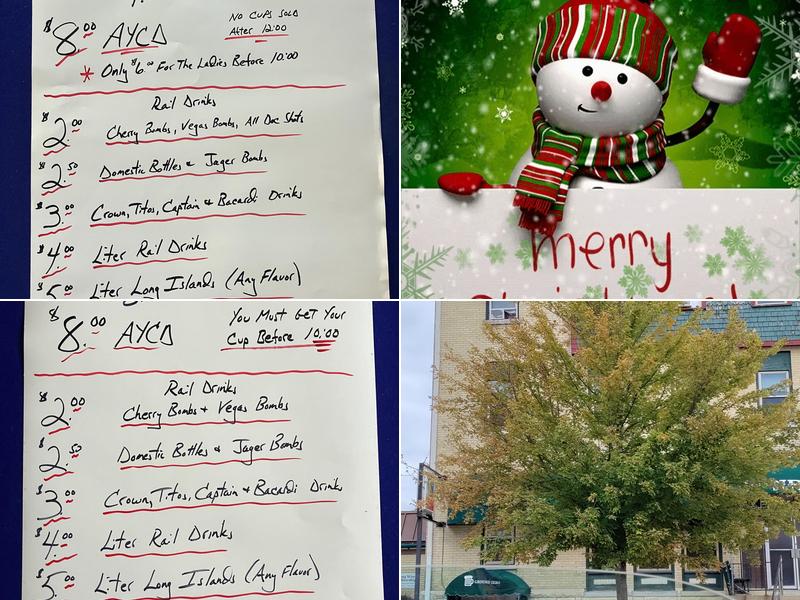 $8.00 AYCD
No Cups Sold
After 12:00
* Only $6.00 For The Ladies Before 10:00
Rail Drinks
$2.00 Cherry Bombs, Vegas Bombs, All Doc Shots
$2.50 Domestic Bottles & Jager Bombs
$3.00 Crown, Titos, Captain & Bacardi Drinks
$4.00 Liter Rail Drinks
$5.00 Liter Long Islands (Any Flavor)
merry
$8.00 AYCD
You Must Get Your
Cup Before 10:00
Rail Drinks
$2.00 Cherry Bombs & Vegas Bombs
$2.50 Domestic Bottles & Jager Bombs
$3.00 Crown, Titos, Captain & Bacardi Drinks
$4.00 Liter Rail Drinks
$5.00 Liter Long Islands (Any Flavor)